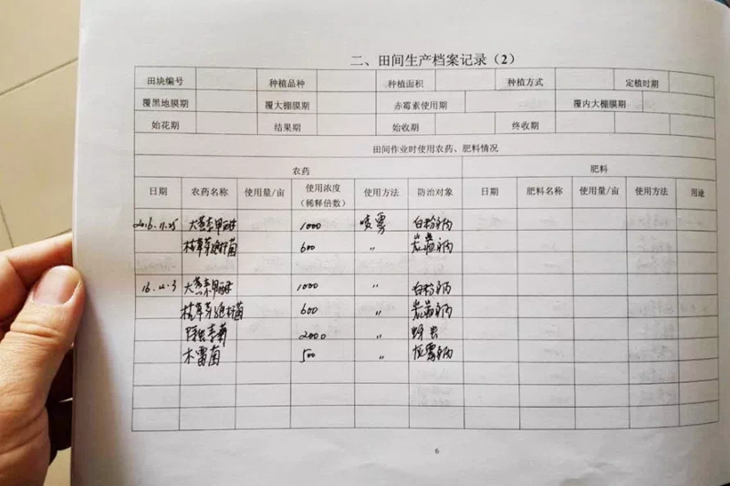 二、田间生产档案记录（2）
田块编号 种植品种 种植面积 种植方式 定植时期
覆黑地膜期 覆大棚膜期 赤霉素使用期 覆内大棚膜期
始花期 结果期 始收期 终收期
田间作业时使用农药、肥料情况
农药 肥料
日期 农药名称 使用量/亩 使用浓度（稀释倍数） 使用方法 防治对象 日期 肥料名称 使用量/亩 使用方法 用途
2016.11.25 大黄素甲醚 1000 喷雾 白粉病
枯草芽孢杆菌 600 〃 炭疽病
大黄素甲醚 1000 〃 白粉病
枯草芽孢杆菌 600 〃 炭疽病
2000 〃
木霉菌 500 〃 灰霉病
6